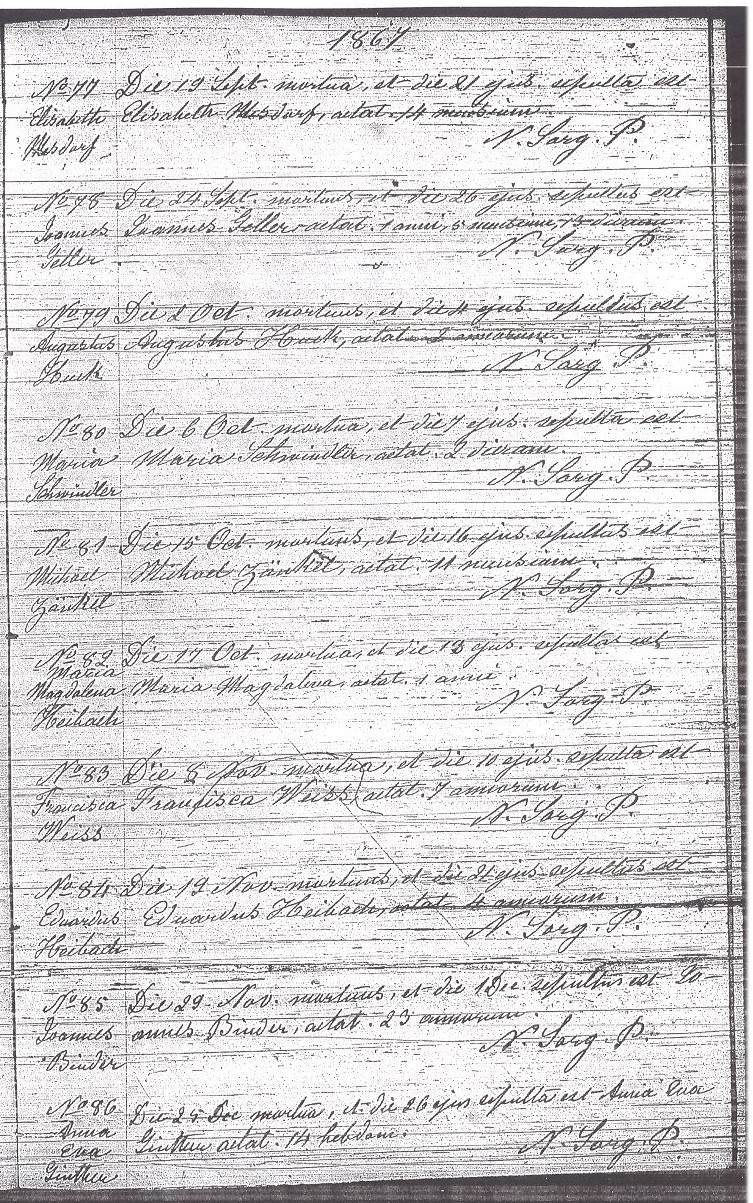 1867
No 77 Die 19 Sept. mortua, et die 21 ejus. sepulta est
Elisabeth Elisabeth Mesdorf, aetat. 14 mensium.
Mesdorf N. Sorg. P.
No 78 Die 24 Sept. mortuus, et die 26 ejus. sepultus est
Joannes Joannes Geller, aetat. 1 anni, 5 mensium, 13 dierum.
Geller N. Sorg. P.
No 79 Die 2 Oct. mortuus, et die 4 ejus. sepultus est
Augustus Augustus Huck, aetat. 2 annorum.
Huck N. Sorg. P.
No 80 Die 6 Oct. mortua, et die 7 ejus. sepulta est
Maria Maria Schwindler, aetat. 2 dierum.
Schwindler N. Sorg. P.
No 81 Die 15 Oct. mortuus, et die 16 ejus. sepultus est
Michael Michael Zänkel, aetat. 11 mensium.
Zänkel N. Sorg. P.
No 82 Die 17 Oct. mortua, et die 18 ejus. sepulta est
Maria
Magdalena Maria Magdalena, aetat. 1 anni.
Heibach N. Sorg. P.
No 83 Die 8 Nov. mortua, et die 10 ejus. sepulta est
Francisca Francisca Weiss, aetat. 7 annorum.
Weiss N. Sorg. P.
No 84 Die 19 Nov. mortuus, et die 21 ejus. sepultus est
Eduardus Eduardus Heibach, aetat. 4 annorum.
Heibach N. Sorg. P.
No 85 Die 29 Nov. mortuus, et die 1 Dec. sepultus est Jo-
Joannes annes Binder, aetat. 23 annorum.
Binder N. Sorg. P.
No 86 Die 25 Dec mortua, et die 26 ejus sepulta est Anna Eva
Anna
Eva Ginther aetat. 14 hebdom.
Ginther N. Sorg. P.